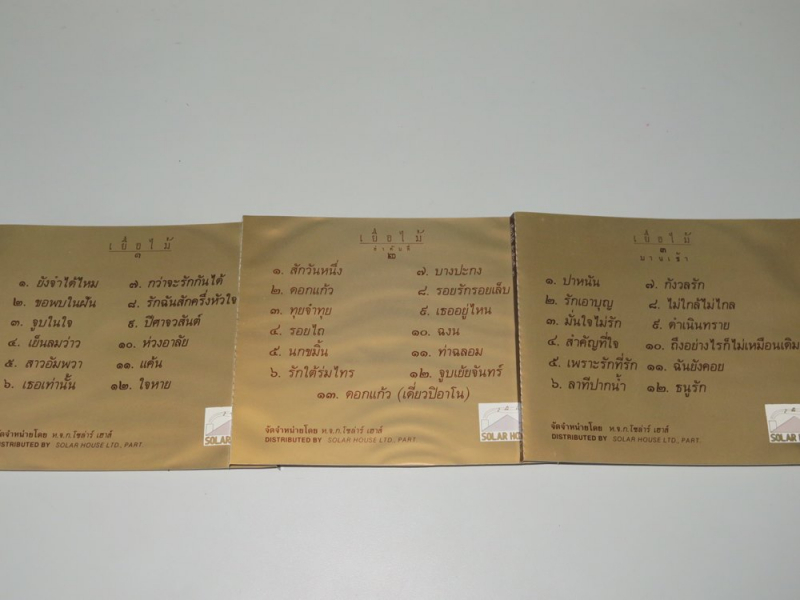 เยื่อไม้
๑
๑. ยังจำได้ไหม
๒. ขอพบในฝัน
๓. จูบในใจ
๔. เย็นลมว่าว
๕. สาวอัมพวา
๖. เธอเท่านั้น
๗. กว่าจะรักกันได้
๘. รักฉันสักครึ่งหัวใจ
๙. ปีศาจวสันต์
๑๐. ห่วงอาลัย
๑๑. แค้น
๑๒. ใจหาย
จัดจำหน่ายโดย ห.จ.ก.โซล่าร์ เฮาส์
DISTRIBUTED BY SOLAR HOUSE LTD., PART.
เยื่อไม้
ลำดับที่
๒
๑. สักวันหนึ่ง
๒. ดอกแก้ว
๓. ทุยจำทุย
๔. รอยไถ
๕. นกขมิ้น
๖. รักใต้ร่มไทร
๗. บางปะกง
๘. รอยรักรอยเล็บ
๙. เธออยู่ไหน
๑๐. ฉงน
๑๑. ท่าฉลอม
๑๒. จูบเย้ยจันทร์
๑๓. ดอกแก้ว (เดี่ยวปิอาโน)
จัดจำหน่ายโดย ห.จ.ก.โซล่าร์ เฮาส์
DISTRIBUTED BY SOLAR HOUSE LTD., PART.
SOLAR HO
เยื่อไม้
๓
๑. ปาหนัน
๒. รักเอาบุญ
๓. มั่นใจไม่รัก
๔. สำคัญที่ใจ
๕. เพราะรักที่รัก
๖. ลาทีปากน้ำ
๗. กังวลรัก
๘. ไม่ใกล้ไม่ไกล
๙. ดำเนินทราย
๑๐. ถึงอย่างไรก็ไม่เหมือนเดิม
๑๑. ฉันยังคอย
๑๒. ธนูรัก
จัดจำหน่ายโดย ห.จ.ก.โซล่าร์ เฮาส์
DISTRIBUTED BY SOLAR HOUSE LTD., PART.
SOLAR